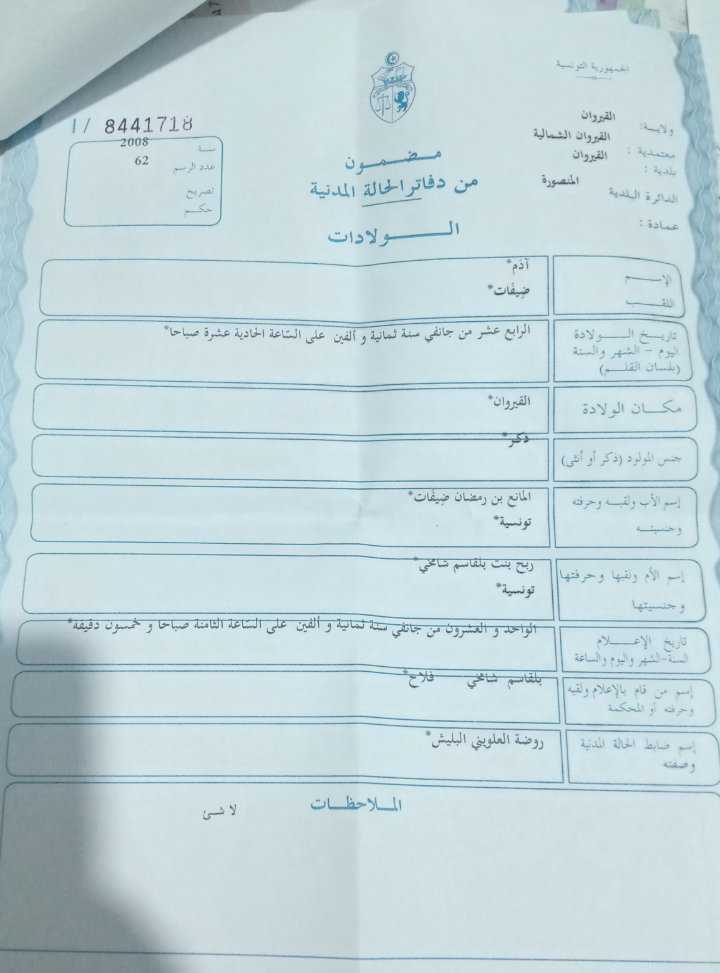 الجمهورية التونسية
ولاية: القيروان
معتمدية: القيروان الشمالية
بلدية: القيروان
الدائرة البلدية المنصورة
عمادة:
I/ 8441718
سنة 2008
عدد الرسم 62
تصريح
حكم
مضمون
من دفاتر الحالة المدنية
الولادات
الإسم آدم*
اللقب ضِيفَات*
تاريخ الولادة
اليوم - الشهر والسنة
(بلسان القلم)
الرابع عشر من جانفي سنة ثمانية و ألفين على السّاعة الحادية عشرة صباحا*
مكان الولادة القيروان*
جنس المولود (ذكر أو أنثى) ذكر*
إسم الأب ولقبه وحرفته المانع بن رمضان ضِيفَات*
وجنسيته تونسية*
إسم الأم ولقبها وحرفتها ربح بنت بلقاسم شامخي*
وجنسيتها تونسية*
تاريخ الإعلام
السنة-الشهر واليوم والساعة
الواحد و العشرون من جانفي سنة ثمانية و ألفين على السّاعة الثامنة صباحا و خمسون دقيقة*
إسم من قام بالإعلام ولقبه
وحرفته أو المحكمة
بلقاسم شامخي فلاح*
إسم ضابط الحالة المدنية
وصفته
روضة العلويني البليش*
الملاحظات
لا شئ